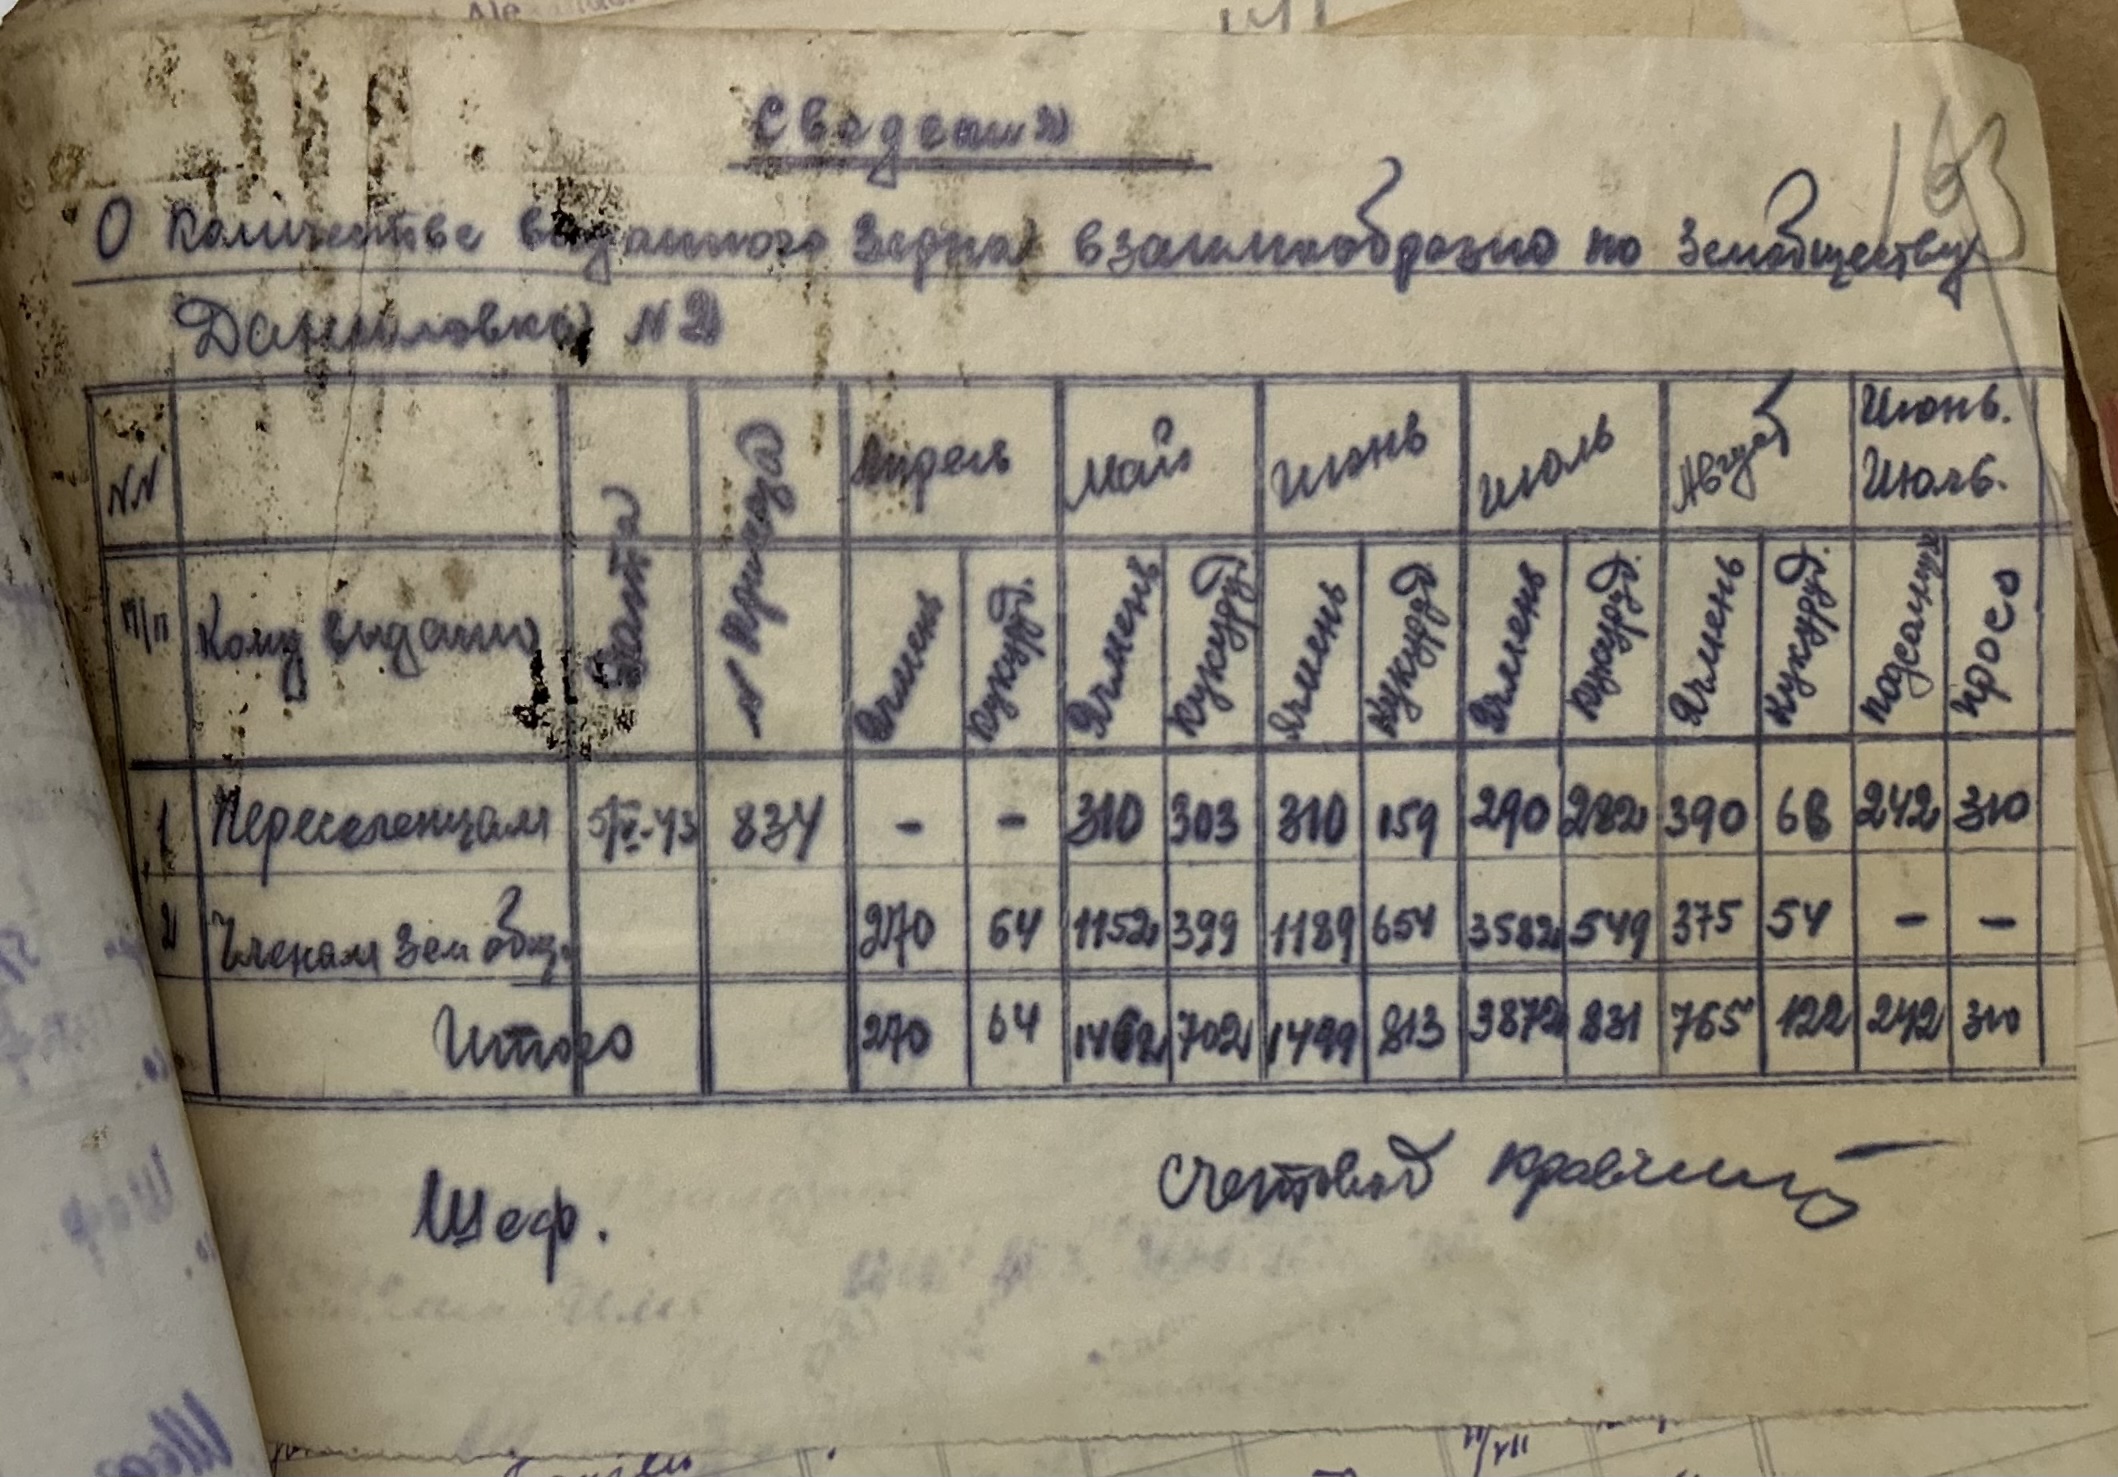 163
Сведения
О Количестве выданного Зерна взаимообразно по Земобществу
Даниловка N 2
NN п/п | Кому выдано | Дата | N Приказа | Апрель | Май | Июнь | Июль | Август | Июнь. Июль.
Ячмень | Кукуруд. | Ячмень | Кукуруд. | Ячмень | Кукуруд | Ячмень | Кукуруд. | Ячмень | Кукуруд. | Подсолнух | Просо
1 | Переселенцам | 5/V-43 | 834 | - | - | 310 | 303 | 310 | 159 | 290 | 282 | 390 | 68 | 242 | 310
2 | Членам Зем общ. | 270 | 64 | 1152 | 399 | 1189 | 654 | 3582 | 549 | 375 | 54 | - | -
Итого | 270 | 64 | 1462 | 702 | 1499 | 813 | 3872 | 831 | 765 | 122 | 242 | 310
Шеф. Счетовод